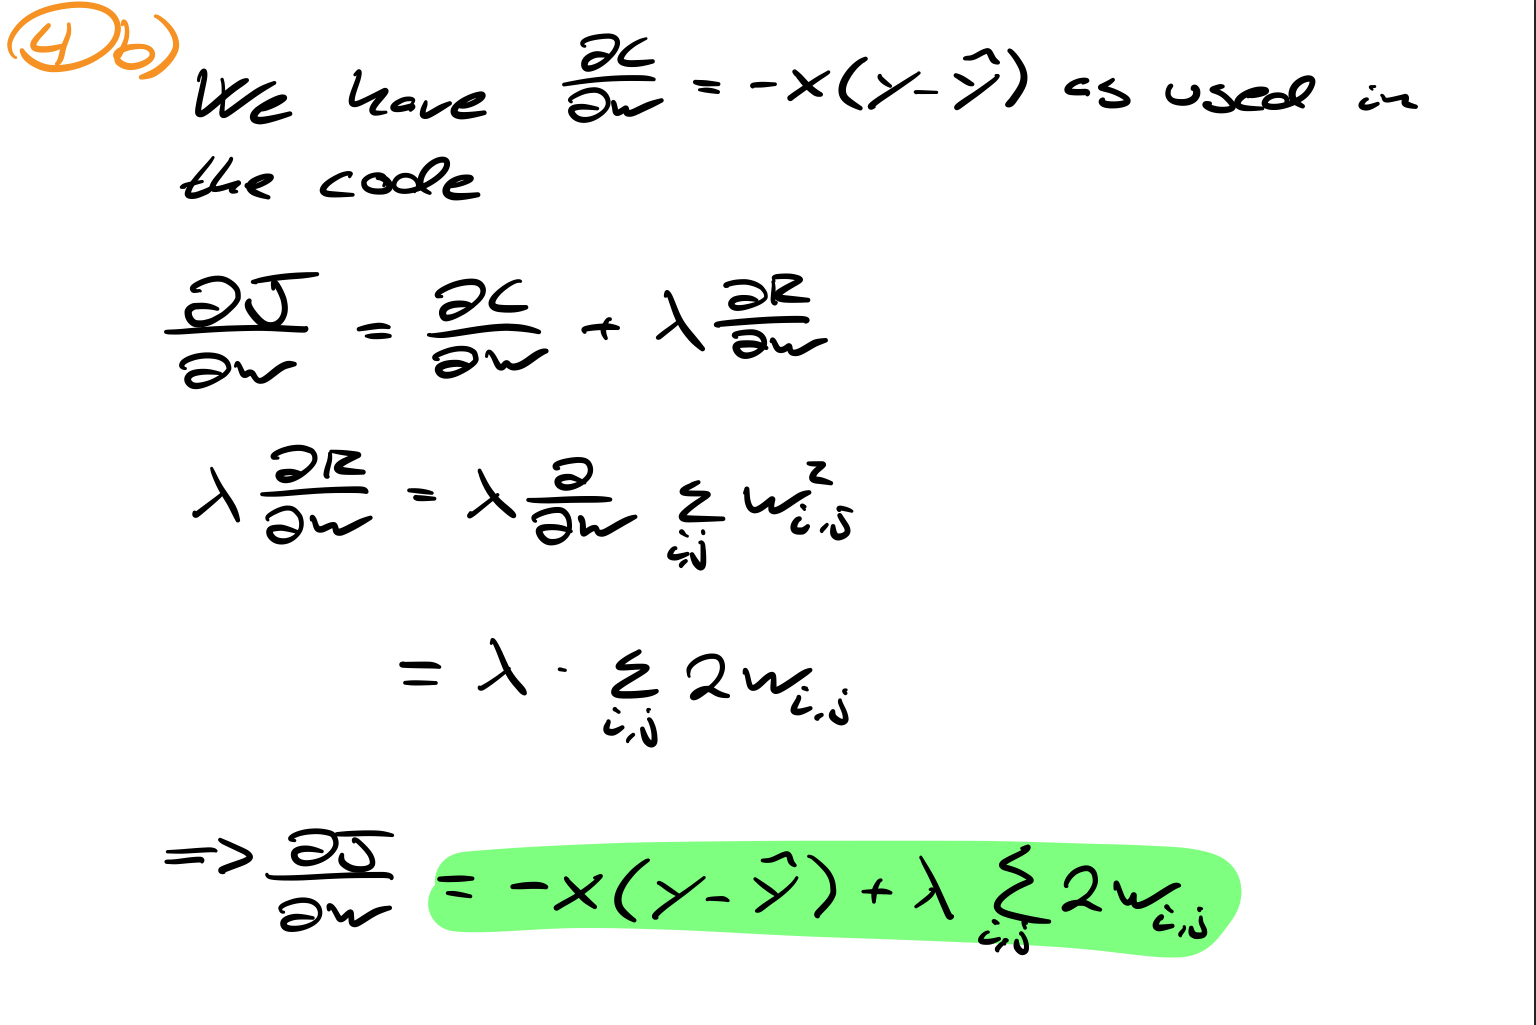 4b)
We have ∂C/∂w = -x(y-ŷ) as used in
the code
∂J/∂w = ∂C/∂w + λ ∂R/∂w
λ ∂R/∂w = λ ∂/∂w Σ_{i,j} w²_{i,j}
= λ · Σ_{i,j} 2w_{i,j}
=> ∂J/∂w = -x(y-ŷ) + λ Σ_{i,j} 2w_{i,j}